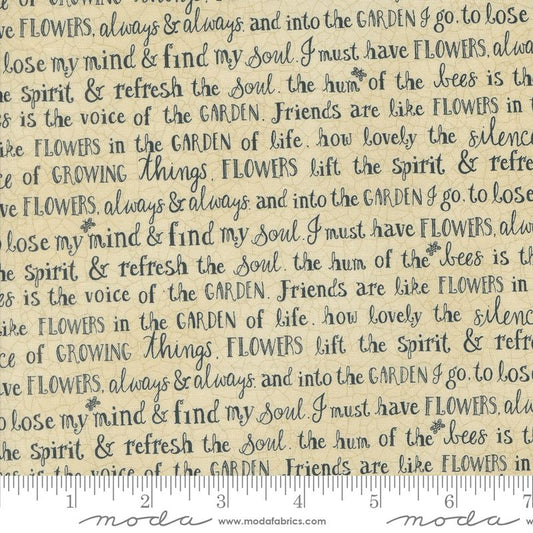 of GROWING things.
ve FLOWERS, always & always. and into the GARDEN I go, to lose
lose my mind & find my soul. I must have FLOWERS, alwa
he spirit & refresh the soul. the hum of the bees is th
s is the voice of the GARDEN. Friends are like FLOWERS in t
ike FLOWERS in the GARDEN of life. how lovely the silence
ce of GROWING things. FLOWERS lift the spirit & refre
ve FLOWERS, always & always. and into the GARDEN I go, to lose
o lose my mind & find my soul. I must have FLOWERS, alw
he spirit & refresh the soul. the hum of the bees is t
es is the voice of the GARDEN. Friends are like FLOWERS in
ike FLOWERS in the GARDEN of life. how lovely the silenc
ce of GROWING things. FLOWERS lift the spirit & refr
ve FLOWERS, always & always. and into the GARDEN I go, to lose
o lose my mind & find my soul. I must have FLOWERS, alw
he spirit & refresh the soul. the hum of the bees is t
es is the voice of the GARDEN. Friends are like FLOWERS in
1 2 3 4 5 6 7
moda www.modafabrics.com moda